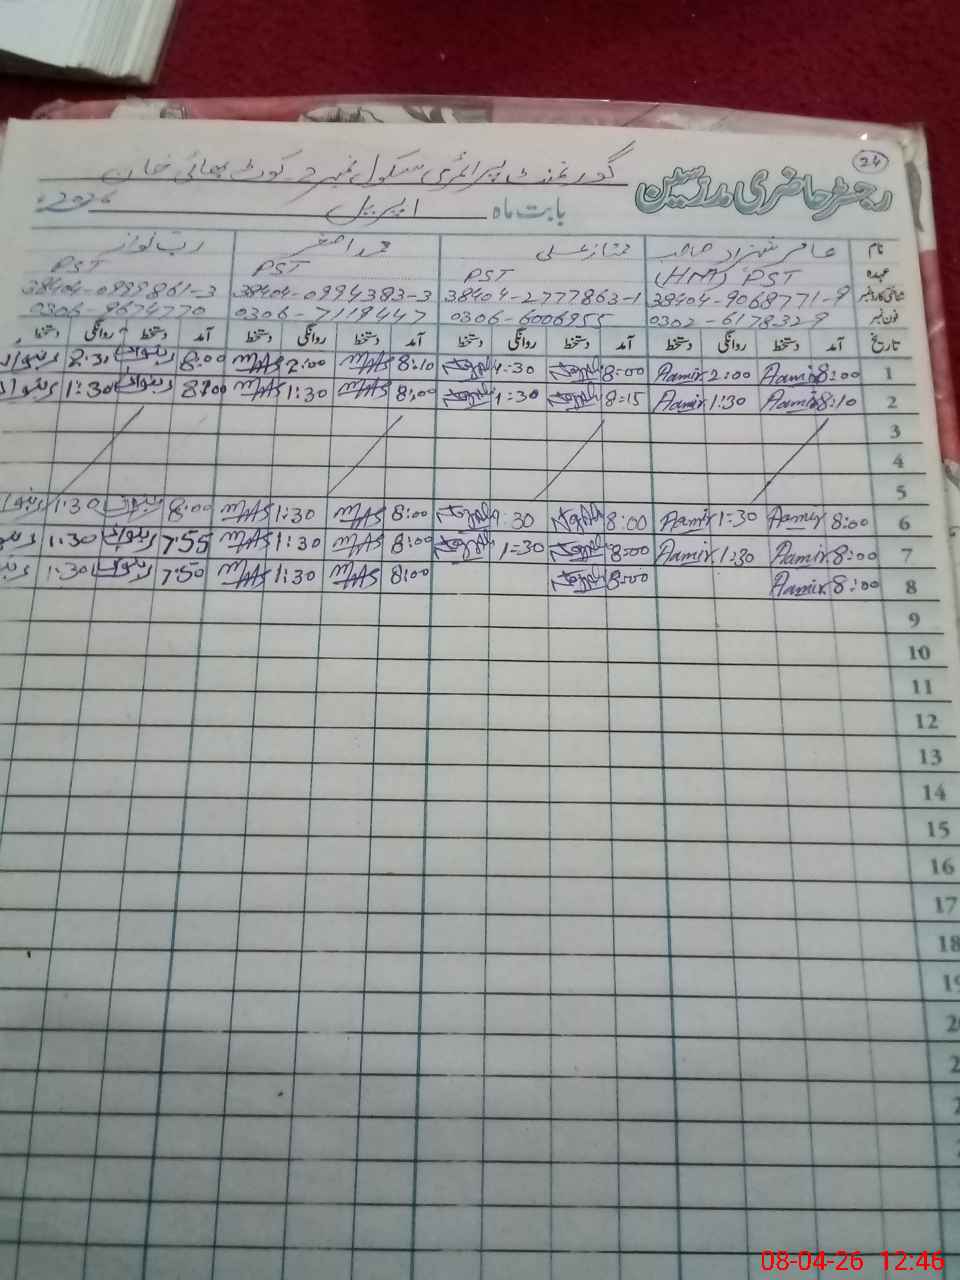 24
رجسٹر حاضری مدرسین
گورنمنٹ پرائمری سکول نمبر 2 کوٹ بھائی خان
بابت ماہ اپریل 2026ء
نام عامر شہزاد ممتاز علی محمد اصغر رب نواز
عہدہ (HM) PST PST PST PST
شناختی کارڈ نمبر 38404-9068771-9 38404-2777863-1 38404-0994383-3 38404-0989861-3
فون نمبر 0302-6178329 0306-6006955 0306-7119447 0306-9674770
تاریخ آمد دستخط روانگی دستخط آمد دستخط روانگی دستخط آمد دستخط روانگی دستخط آمد دستخط روانگی دستخط
1 8:00 Aamir 2:00 Aamir 8:00 1:30 8:10 2:00 8:00 2:30
2 8:10 Aamir 1:30 Aamir 8:15 1:30 8:00 1:30 8:00 1:30
3
4
5
6 8:00 Aamir 1:30 Aamir 8:00 1:30 8:00 1:30 8:00 1:30
7 8:00 Aamir 1:30 Aamir 8:00 1:30 8:00 1:30 7:55 1:30
8 8:00 Aamir 8:00 8:00 1:30 7:50 1:30
9
10
11
12
13
14
15
16
17
18
08-04-26 12:46